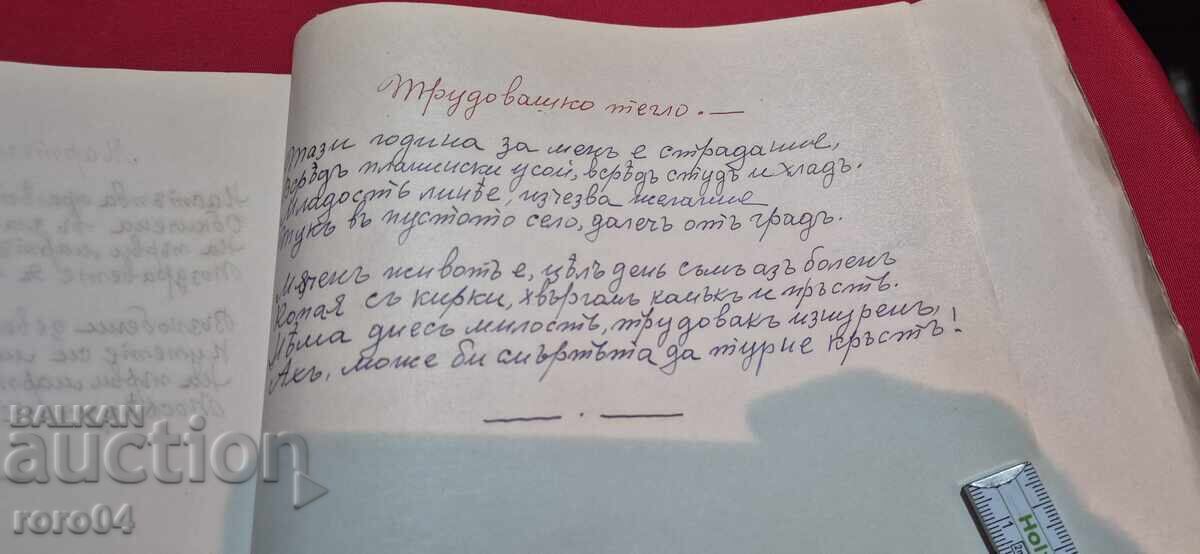 Трудовашко тегло. —
Тази година за менъ е страдание,
Всрѣдъ планински усой, всрѣдъ студъ и хладъ.
Младость линѣе, изчезва желание
Тукъ въ пустото село, далечъ отъ градъ.
Мѫченъ животъ е, цѣлъ день съмъ азъ боленъ
Копая съ кирки, хвъргамъ камъкъ и пръсть.
Нѣма днесь милость, трудовакъ изнуренъ,
Ахъ, може би смъртьта да турне кръстъ!
BALKAN
auction
roro04
Hol
1 2